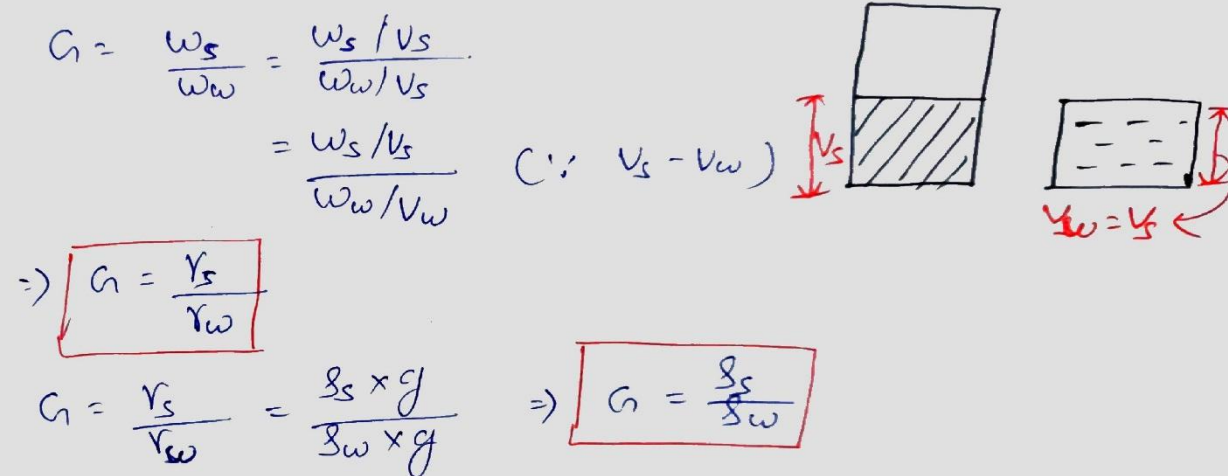 G = Ws/Ww = (Ws/Vs)/(Ww/Vs)
= (Ws/Vs)/(Ww/Vw) (∵ Vs - Vw)
Vs
Vw = Vs
=) G = γs/γw
G = γs/γw = (ρs × g)/(ρw × g) =) G = ρs/ρw